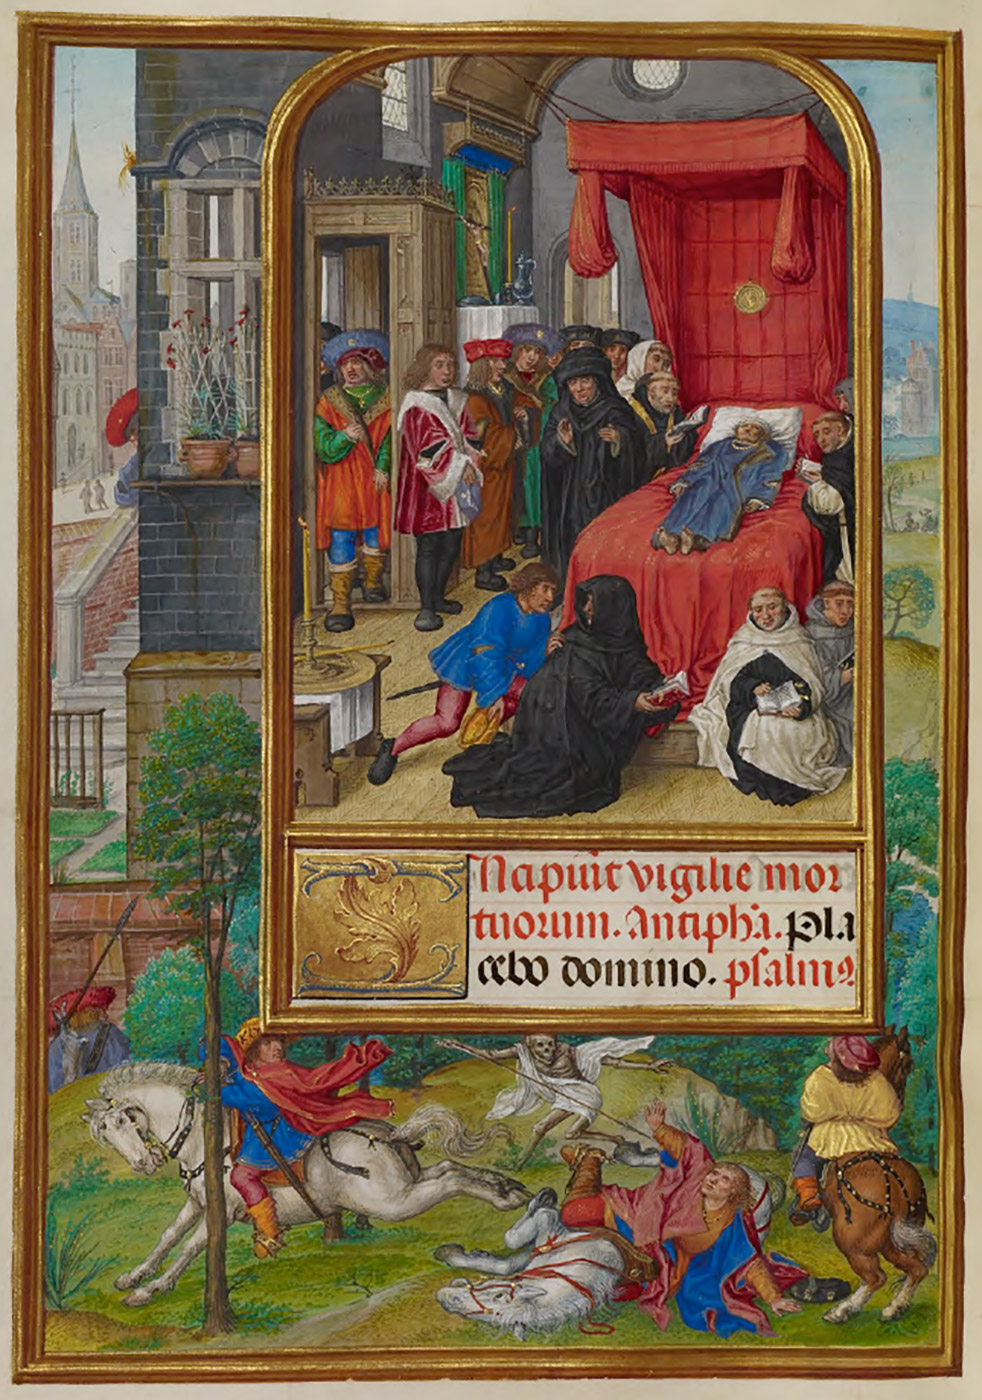 Ncipiūt vigilie mor
tuorum. Antiph̄a. Pla
cebo domino. psalmꝰ